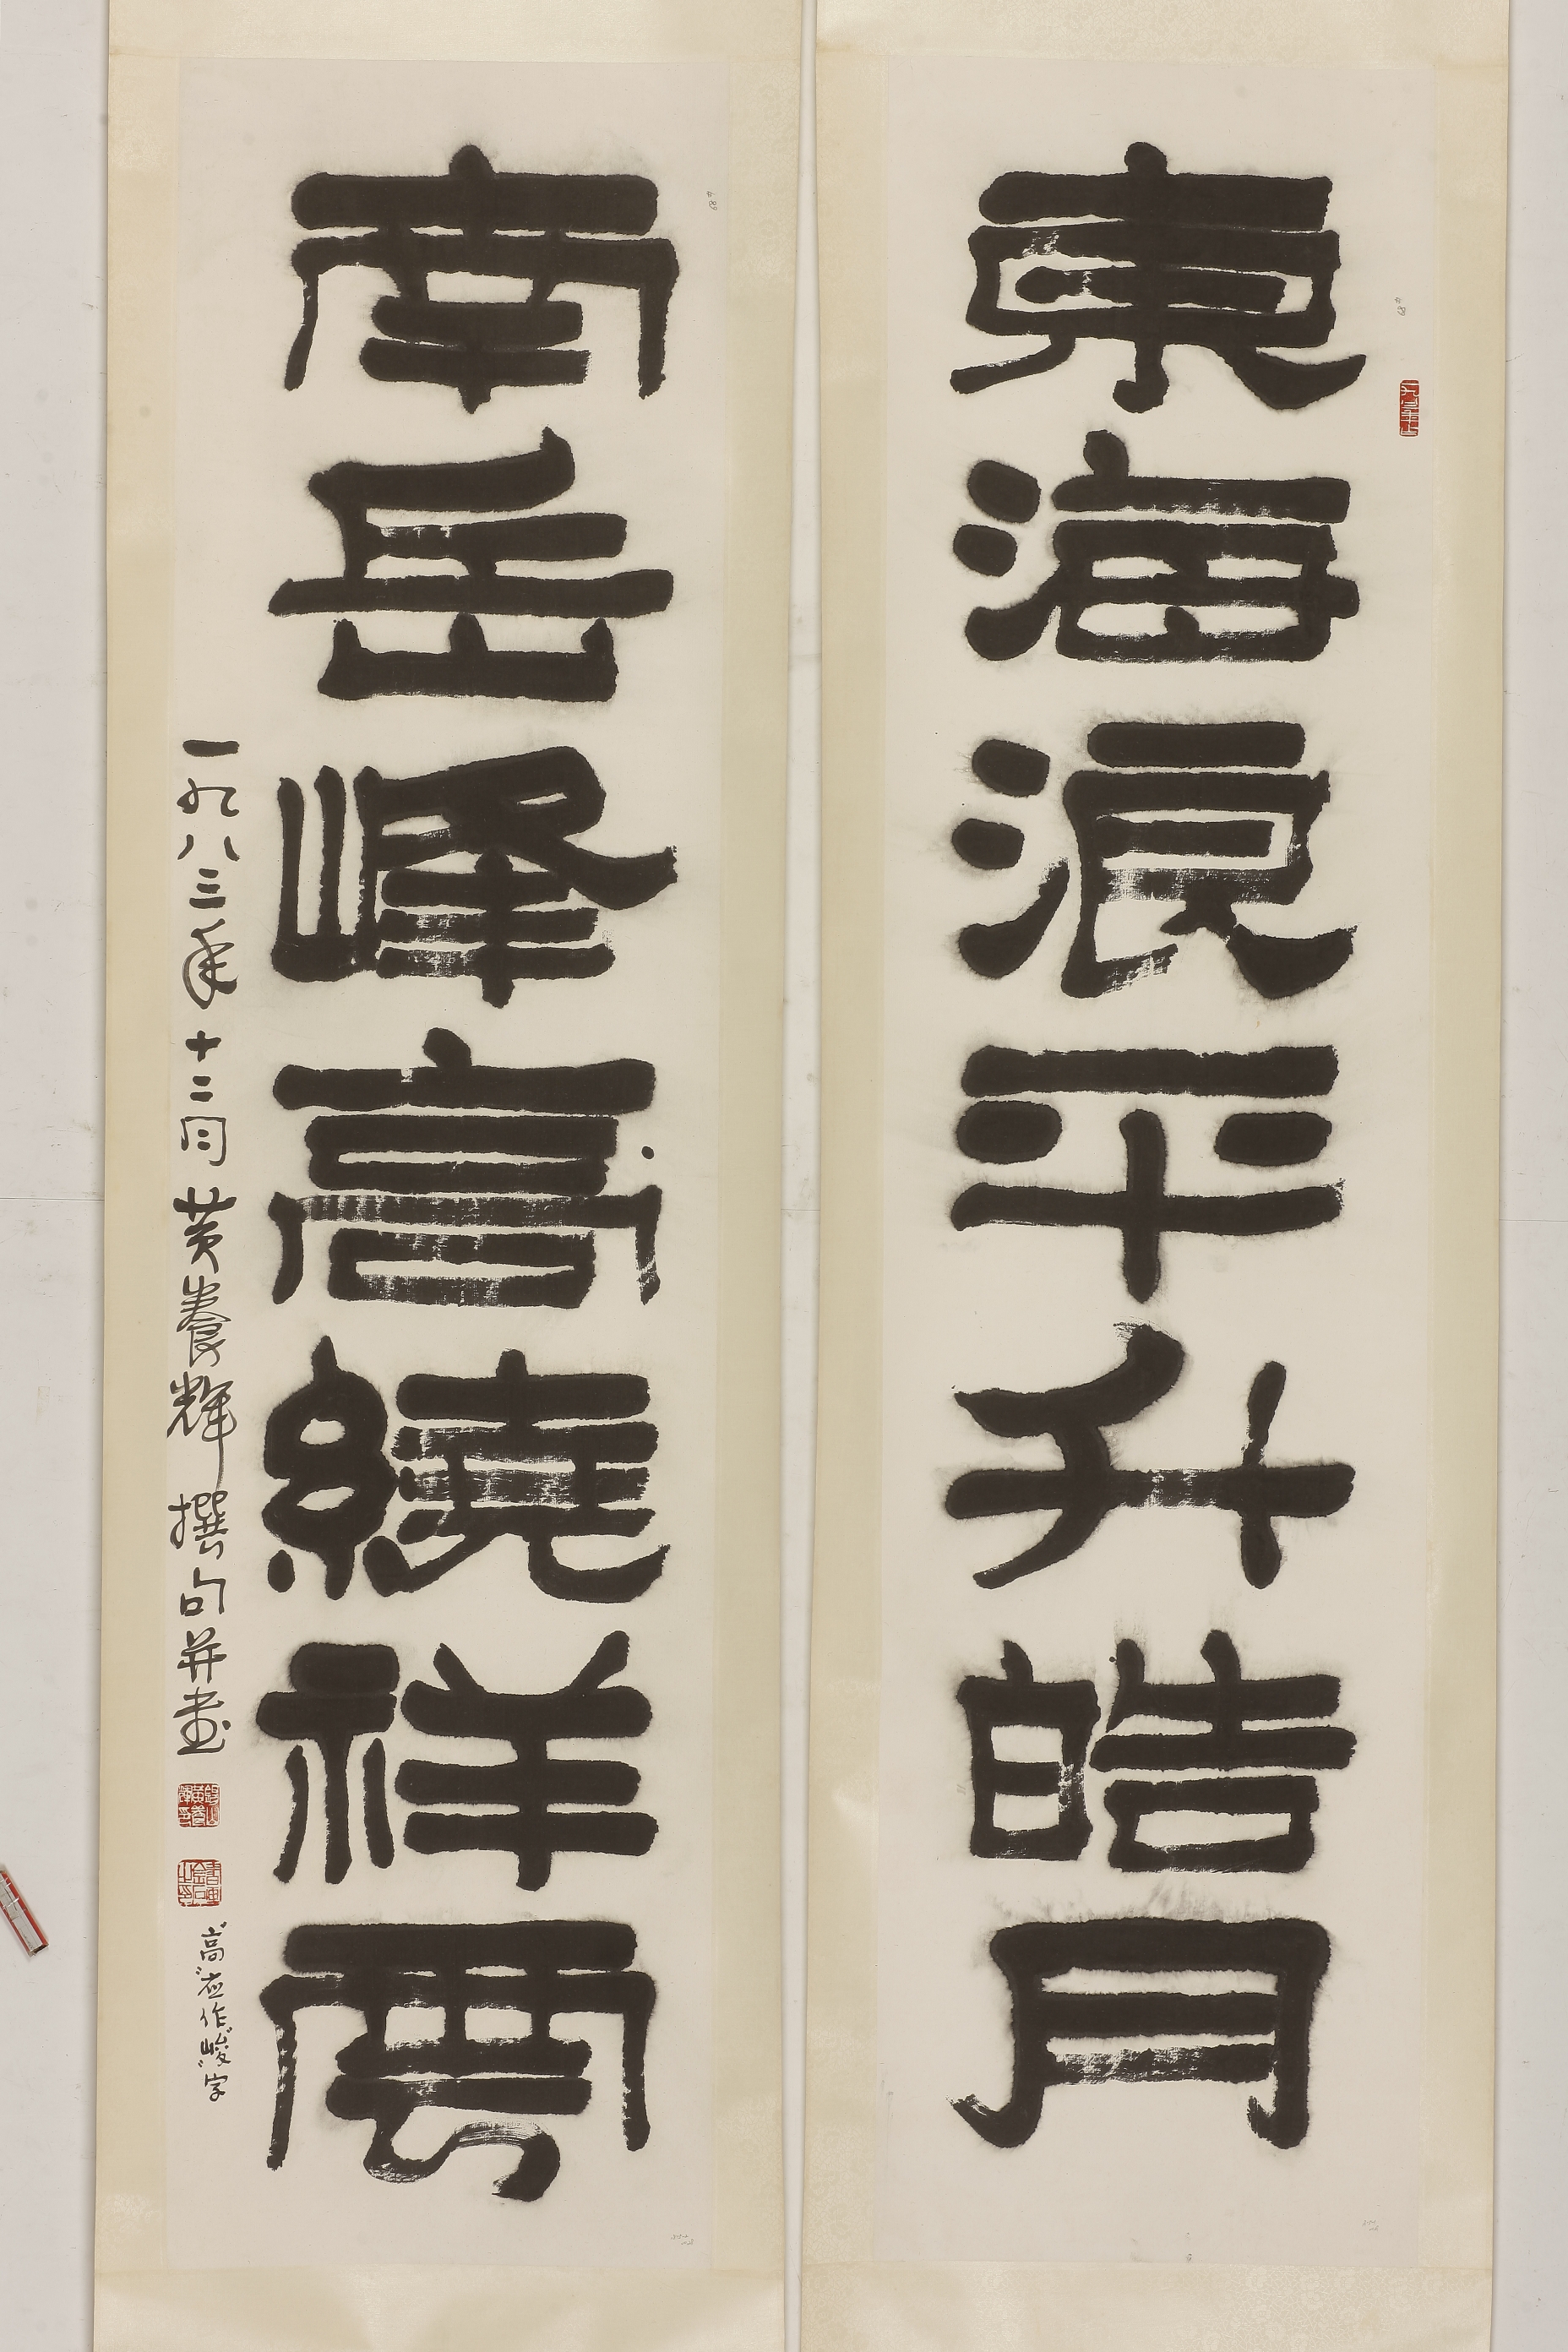 東海浪平升皓月
南岳峰高繞祥雲
一九八三年十二月 黄養輝撰句并书
"高"应作"峻"字